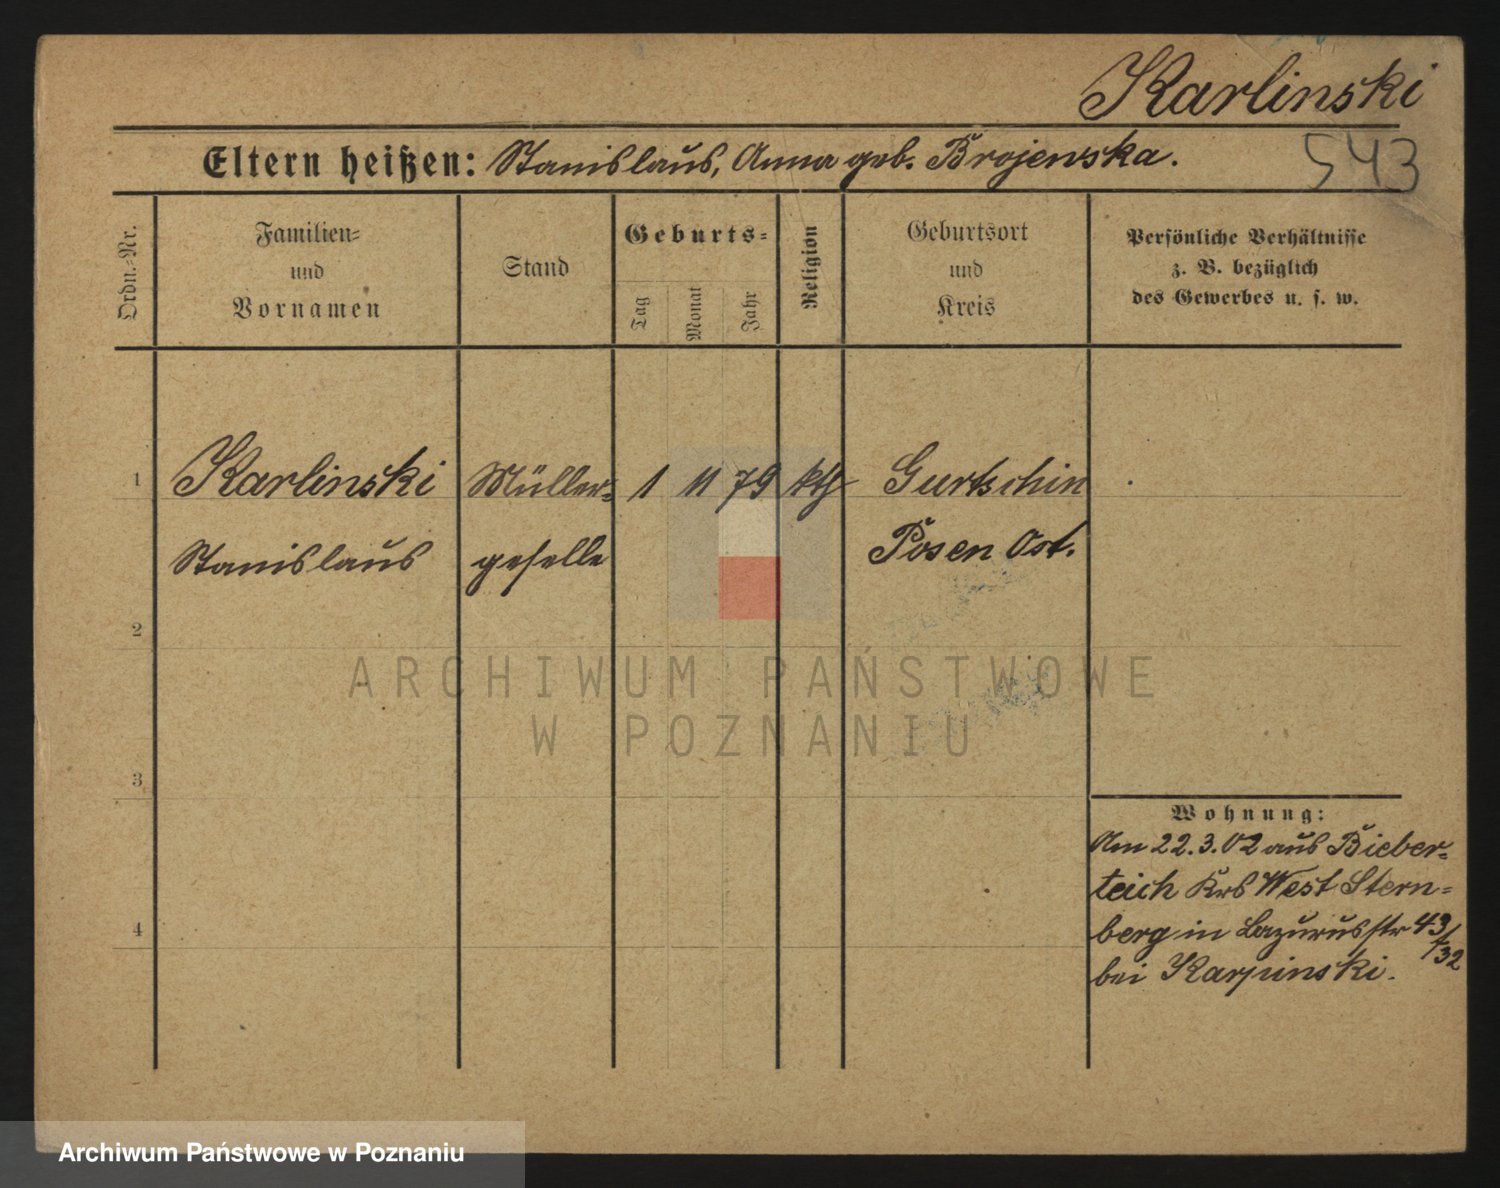 Karlinski
543
Eltern heißen: Stanislaus, Anna geb. Brojenska.
Ordn.-Nr.
Familien-
und
Vornamen
Stand
Geburts-
Tag
Monat
Jahr
Religion
Geburtsort
und
Kreis
Persönliche Verhältnisse
z. B. bezüglich
des Gewerbes u. s. w.
1 Karlinski Müller- 1 11 79 kth Gurtschin
Stanislaus geselle Posen Ost.
2
ARCHIWUM PAŃSTWOWE
W POZNANIU
3
Wohnung:
Am 22.3.02 aus Bieber-
teich Krs West Stern-
4
berg in Lazurusstr 43/
32
bei Karpinski.
Archiwum Państwowe w Poznaniu